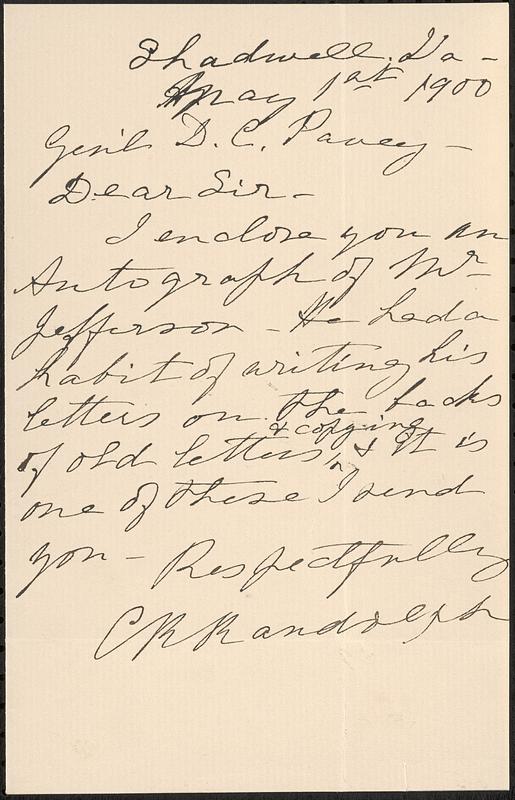 Shadwell. Va -
May 1st 1900
Gen'l D. C. Pavey -
Dear Sir -
I enclose you an
Autograph of Mr
Jefferson - He had a
habit of writing his
letters on the backs
& copying
of old letters, & It is
one of these I send
you - Respectfully
C R Randolph